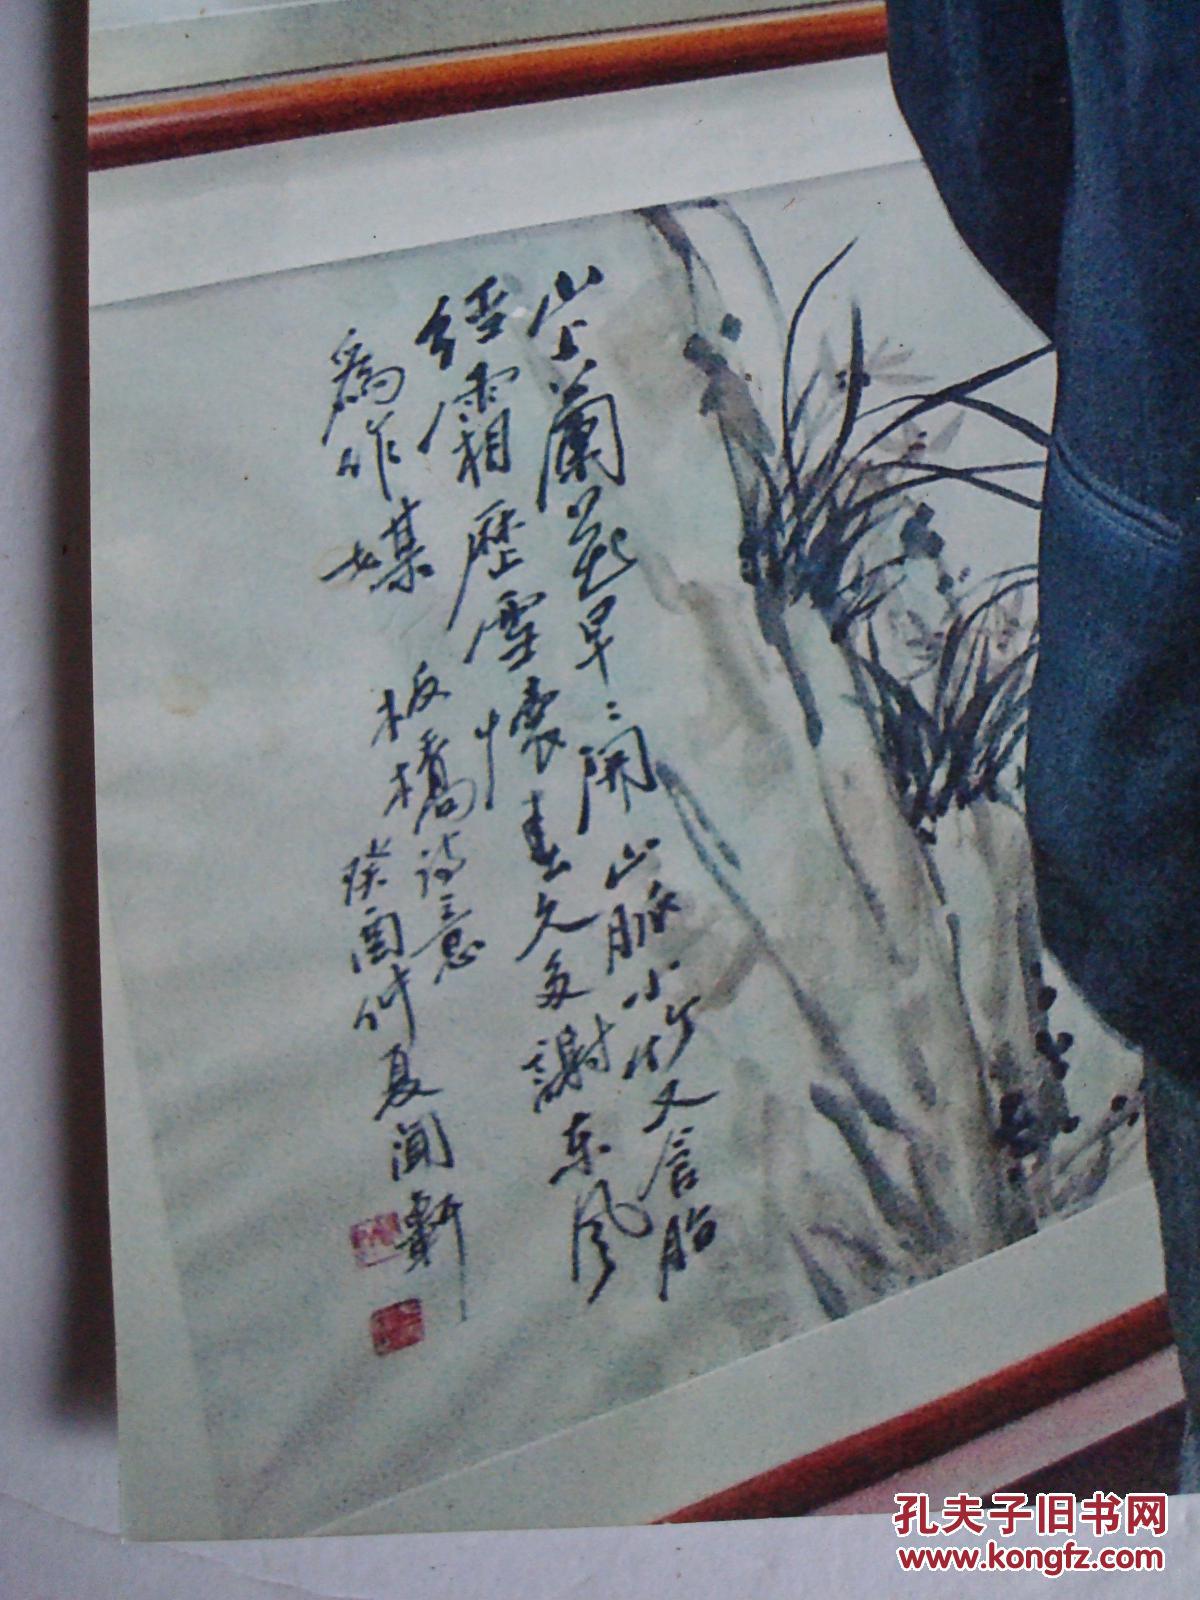 山上蘭花早〻開山脈小竹又含胎
經霜歷雪懷春久多謝东风
為作媒
板橋诗意
癸酉仲夏闻
孔夫子旧书网
www.kongfz.com